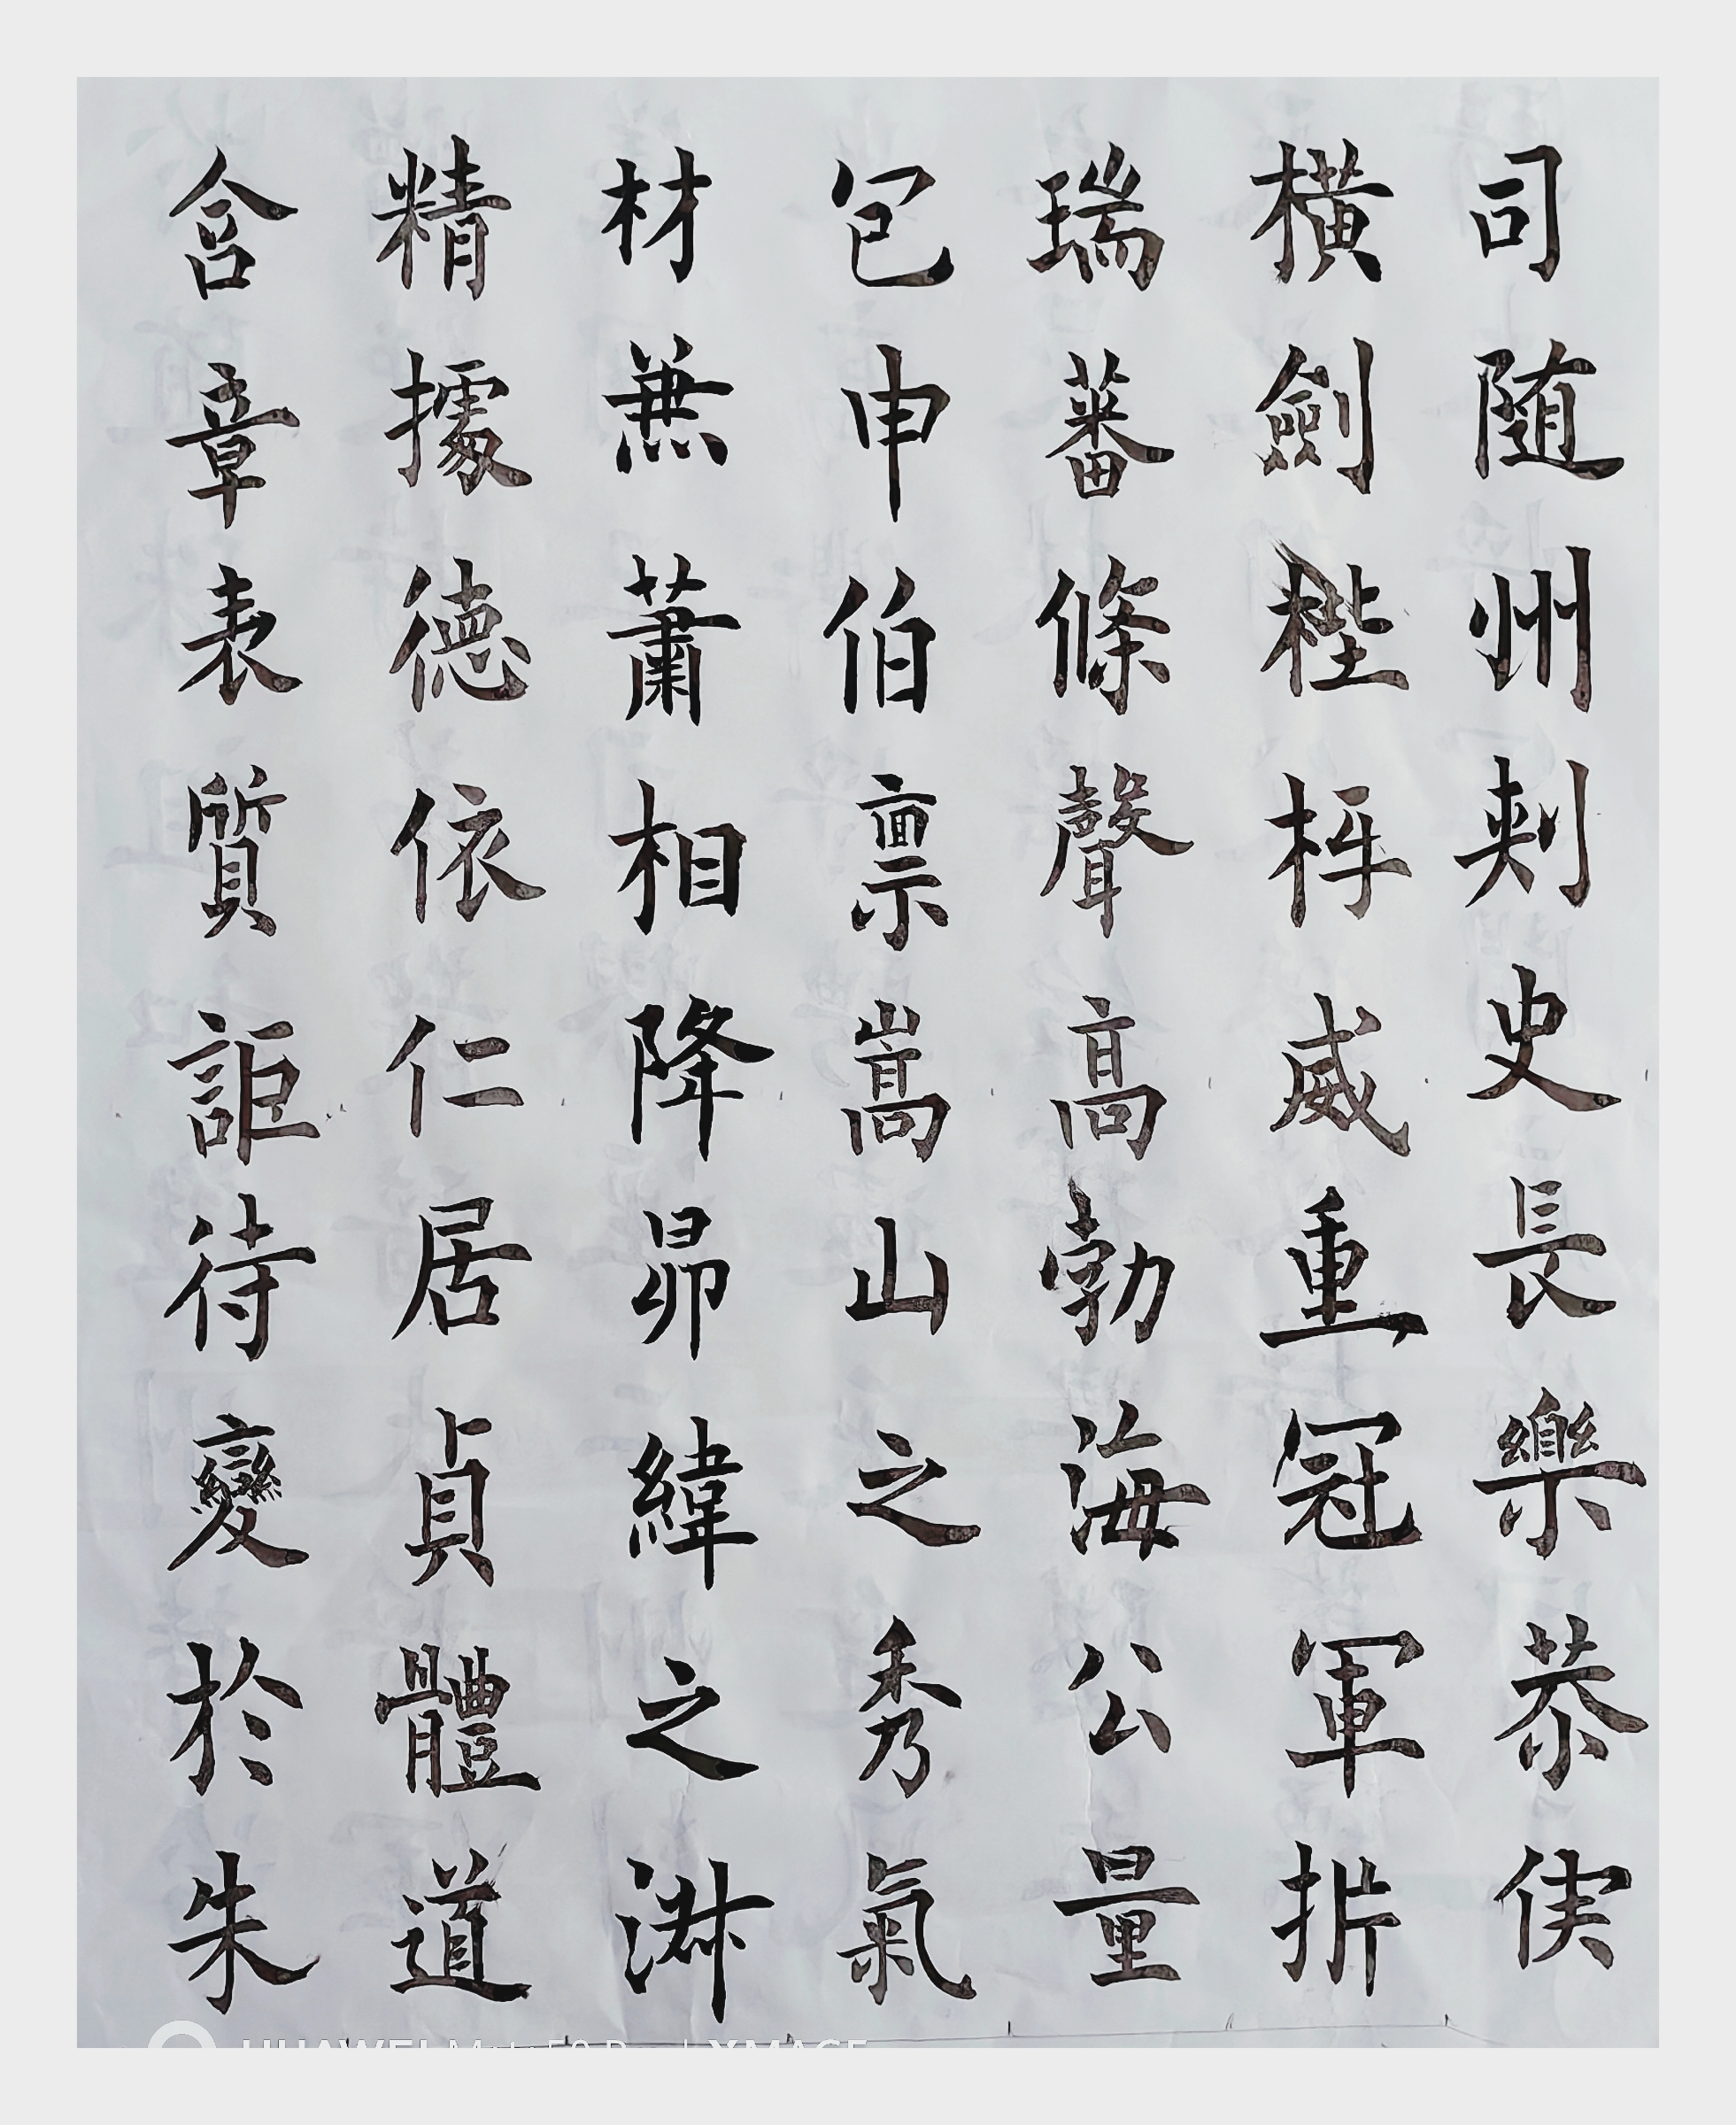 司随州刺史長樂恭侯
横劍梐枑威重冠軍折
瑞蕃條聲高勃海公量
包申伯禀嵩山之秀氣
材兼蕭相降昴緯之淋
精據德依仁居貞體道
含章表質詎待變於朱
HUAWEI